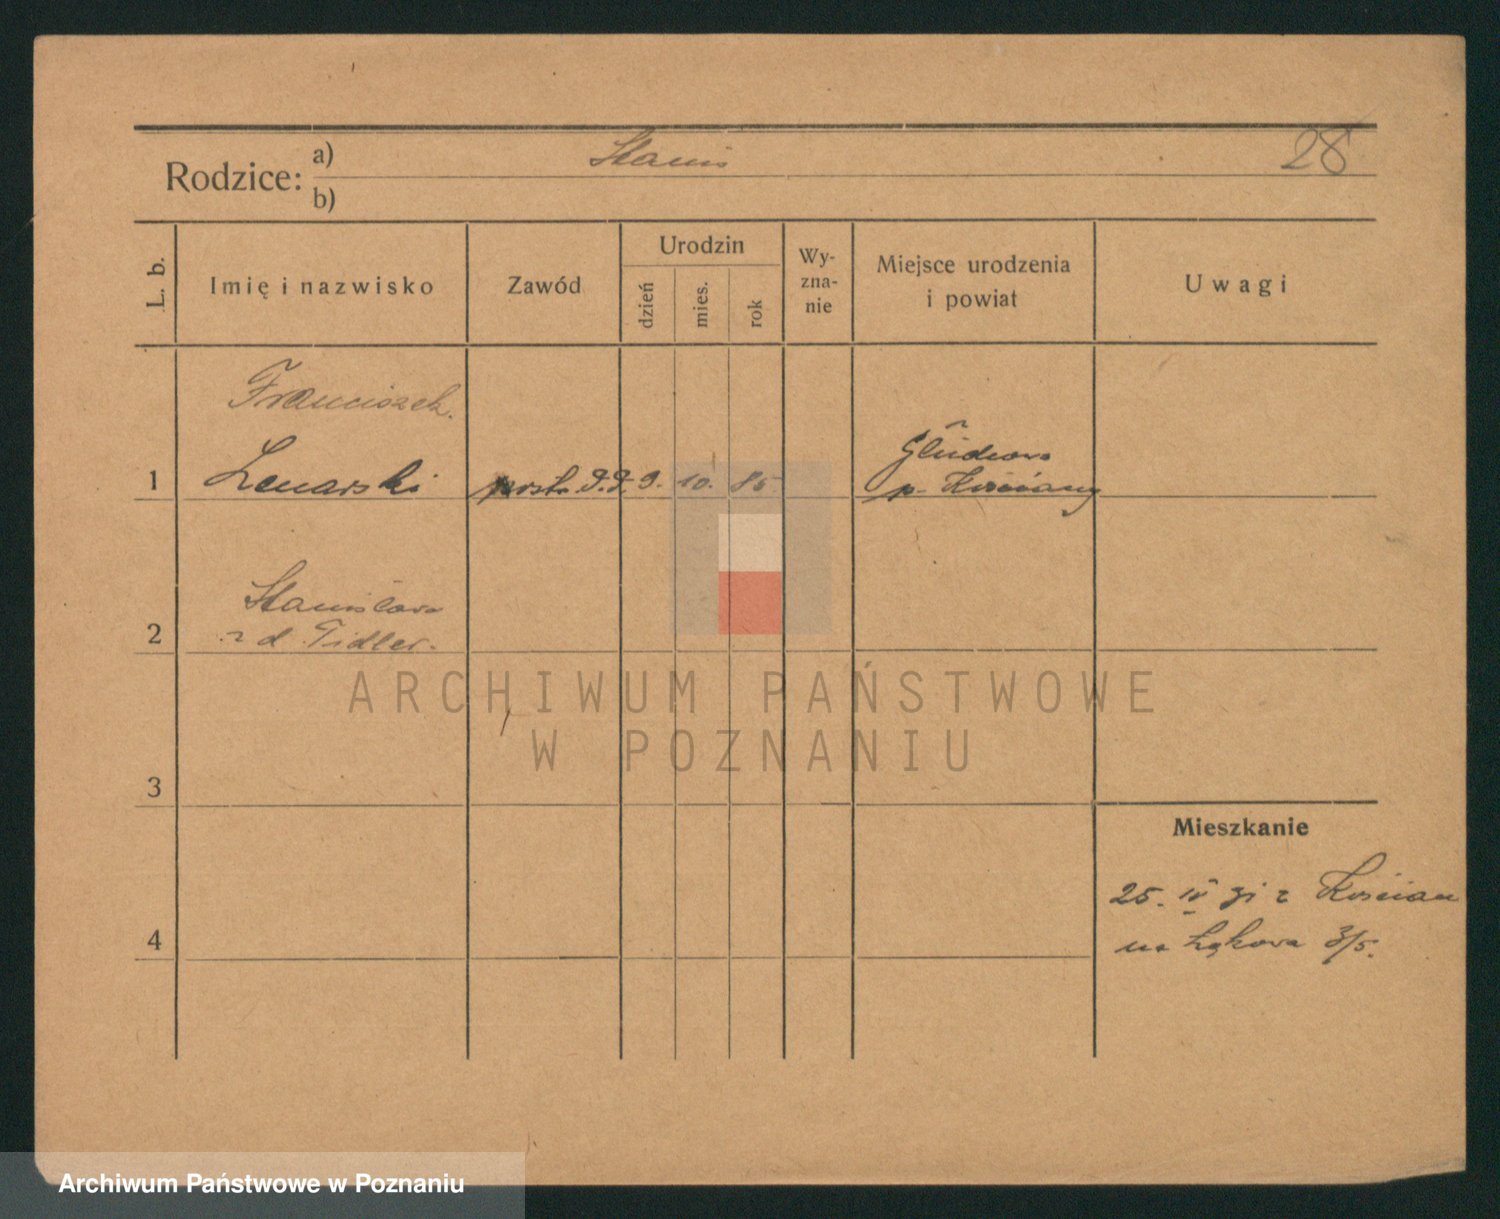 Rodzice: a) Stanis 28
b)
L. b. Imię i nazwisko Zawód Urodzin dzień mies. rok Wy-zna-nie Miejsce urodzenia i powiat Uwagi
Franciszek.
1 Lenarski 9. 10. 85
p. Kościany
Stanisława
2 z d. Fidler.
3
Mieszkanie
25. IV z Kościan
4 na Łąkowa 3/5.
ARCHIWUM PAŃSTWOWE
W POZNANIU
Archiwum Państwowe w Poznaniu